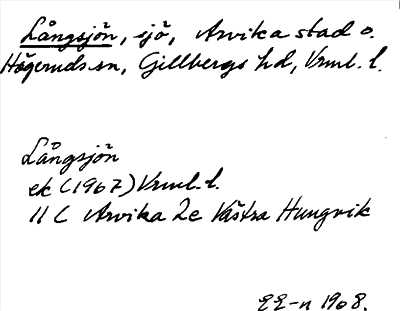 Långsjön, sjö, Arvika stad o.
Högeruds sn, Gillbergs hd, Vrml. l.
Långsjön
ek (1967) Vrml. l.
11 C Arvika 2e Västra Hungvik
EE-n 1908.